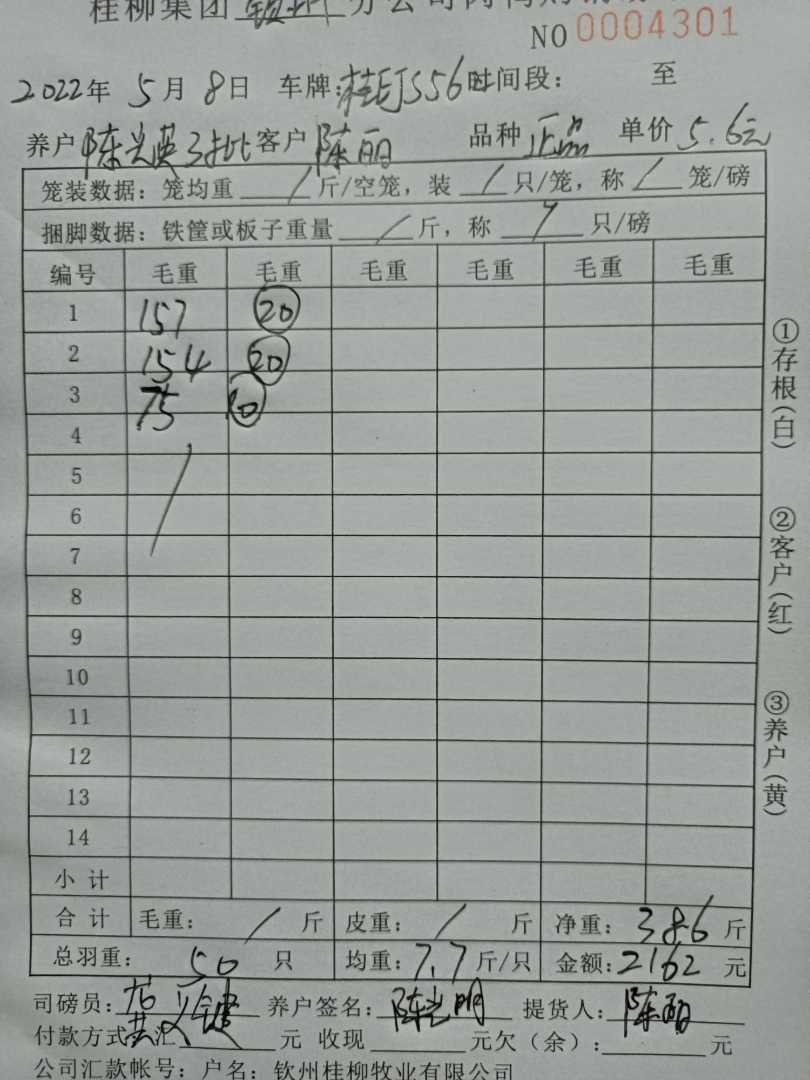 桂柳集团 钦州 分公司肉
NO 0004301
2022年 5月 8日 车牌: 时间段: 至
养户 陈 3批 客户 陈丽 品种 正品 单价 5.6元
笼装数据: 笼均重 / 斤/空笼, 装 / 只/笼, 称 / 笼/磅
捆脚数据: 铁筐或板子重量 / 斤, 称 只/磅
编号 毛重 毛重 毛重 毛重 毛重 毛重
1 157 20
2 154 20
3 75 10
4
5
6
7
8
9
10
11
12
13
14
小 计
合 计 毛重: / 斤 皮重: / 斤 净重: 386 斤
总羽重: 50 只 均重: 7.7 斤/只 金额: 2162 元
司磅员: 养户签名: 陈 明 提货人: 陈丽
付款方式: 汇 元 收现 元欠(余): 元
公司汇款帐号: 户名: 钦州桂柳牧业有限公司
①存根(白) ②客户(红) ③养户(黄)